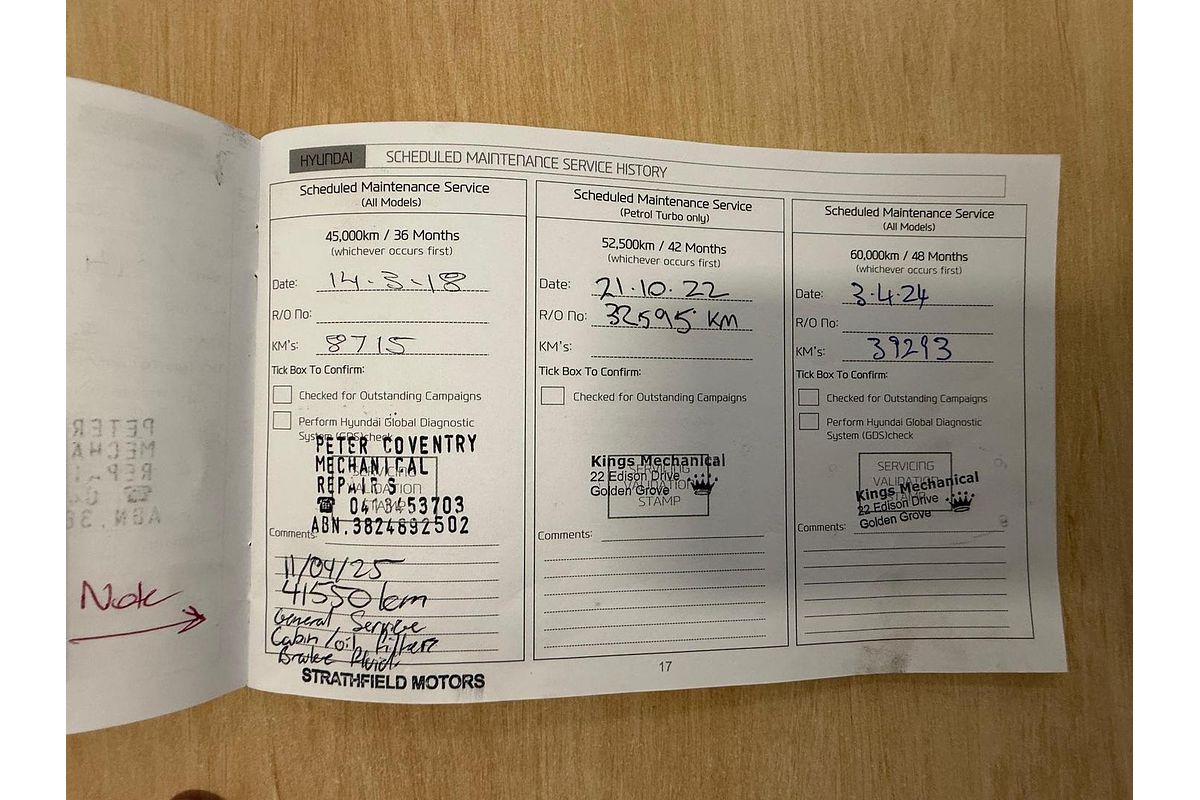 HYUNDAI SCHEDULED MAINTENANCE SERVICE HISTORY
Scheduled Maintenance Service
(All Models)
45,000km / 36 Months
(whichever occurs first)
Date: 14.3.18
R/O No:
KM's: 8715
Tick Box To Confirm:
Checked for Outstanding Campaigns
Perform Hyundai Global Diagnostic
System (GDS)check
PETER COVENTRY
MECHANICAL
REPAIRS
☎ 0413453703
ABN.3824892502
SERVICING
VALIDATION
STAMP
Comments:
11/09/25
41550km
General Service
Cabin/oil filters
Brake fluid
STRATHFIELD MOTORS
Scheduled Maintenance Service
(Petrol Turbo only)
52,500km / 42 Months
(whichever occurs first)
Date: 21.10.22
R/O No: 32595 KM
KM's:
Tick Box To Confirm:
Checked for Outstanding Campaigns
Kings Mechanical
22 Edison Drive
Golden Grove
SERVICING
VALIDATION
STAMP
Comments:
Scheduled Maintenance Service
(All Models)
60,000km / 48 Months
(whichever occurs first)
Date: 3.4.24
R/O No:
KM's: 39293
Tick Box To Confirm:
Checked for Outstanding Campaigns
Perform Hyundai Global Diagnostic
System (GDS)check
SERVICING
VALIDATION
STAMP
Kings Mechanical
22 Edison Drive
Golden Grove
Comments:
17
Note